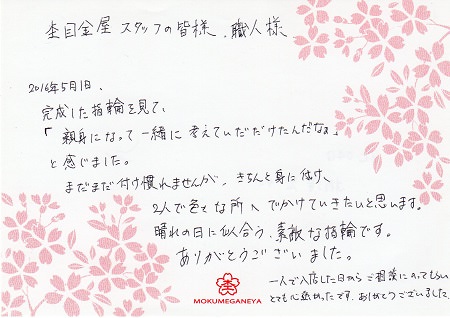 杢目金屋 スタッフの皆様、職人様
2016年5月1日、
完成した指輪を見て、
「親身になって一緒に考えていただけたんだなぁ」
と感じました。
まだまだ付け慣れませんが、きちんと身に付け、
2人で色々な所へでかけていきたいと思います。
晴れの日に似合う、素敵な指輪です。
ありがとうございました。
一人で入店した日からご相談にのってもらい
とても心強かったです。ありがとうございました。
MOKUMEGANEYA